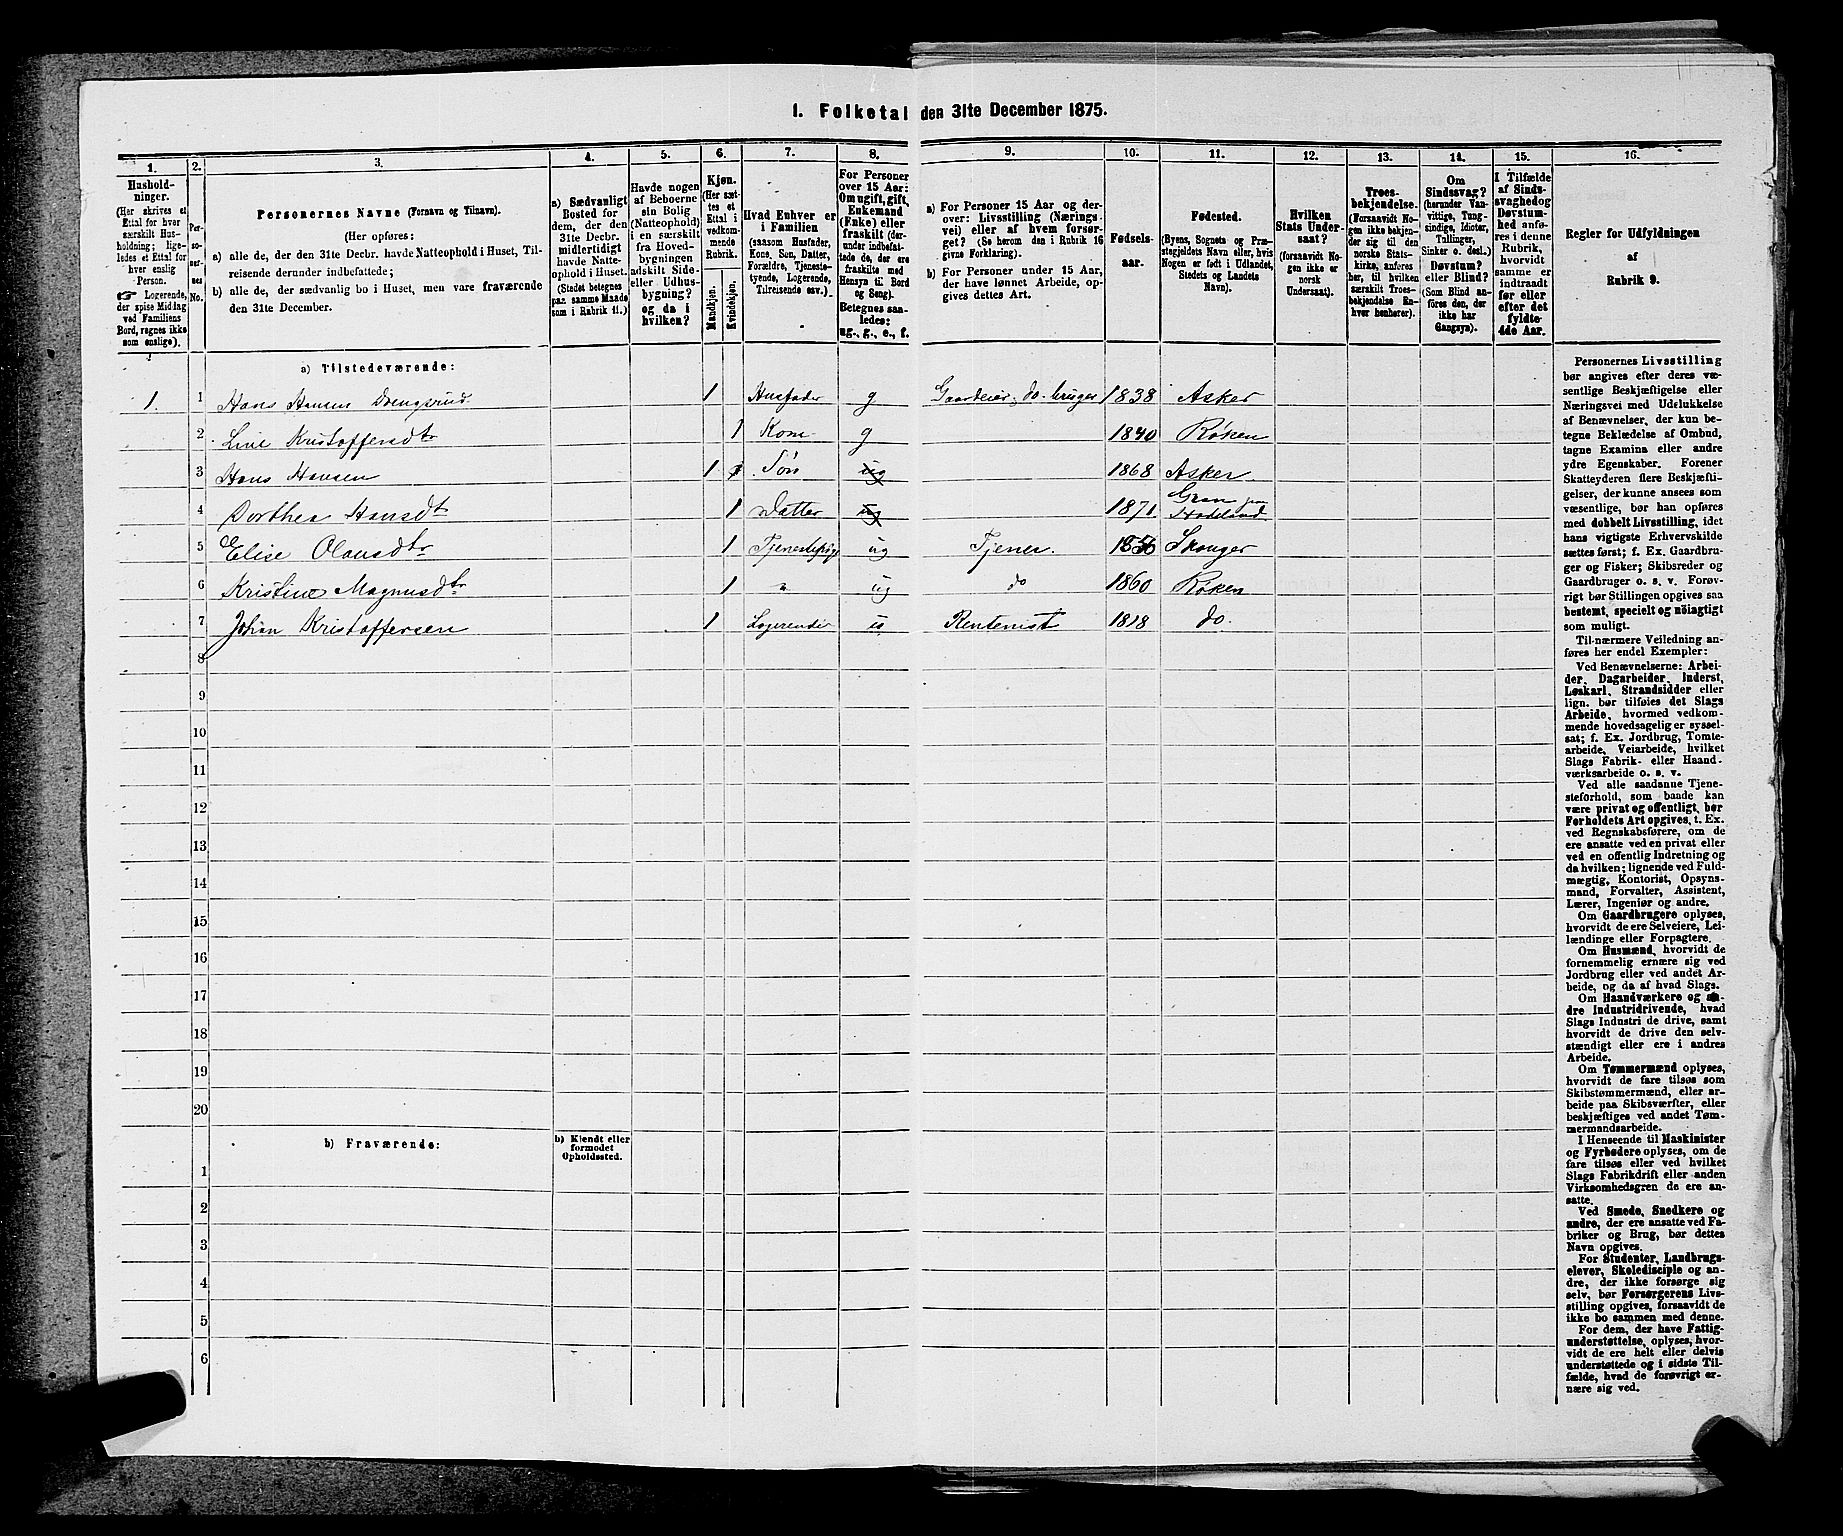 1. Folketal den 31te December 1875.
1.
2.
3.
4.
5.
6.
7.
8.
9.
10.
11.
12.
13.
14.
15.
16.
Hushold-
ninger.
(Her skrives et
Ettal for hver
særskilt Hus-
holdning; lige-
ledes et Ettal for
hver enslig
Person.
☞ Logerende,
der spise Middag
ved Familiens
Bord, regnes ikke
som enslige).
Per-
so-
ner-
nes
No.
Personernes Navne (Fornavn og Tilnavn).
(Her opføres:
a) alle de, der den 31te Decbr. havde Natteophold i Huset, Til-
reisende derunder indbefattede;
b) alle de, der sædvanlig bo i Huset, men vare fraværende
den 31te December.
a) Sædvanligt
Bosted for
dem, der den
31te Decbr.
midlertidigt
havde Natte-
ophold i Huset.
(Stedet betegnes
paa samme Maade
som i Rubrik 11.)
Havde nogen
af Beboerne
sin Bolig
(Natteophold)
i en særskilt
fra Hoved-
bygningen
adskilt Side-
eller Udhus-
bygning?
og da i
hvilken?
Kjøn.
(Her sæt-
tes et
Ettal i
vedkom-
mende
Rubrik.
Mandkjøn.
Kvindekjøn.
Hvad Enhver er
i Familien
(saasom Husfader,
Kone, Søn, Datter,
Forældre, Tjeneste-
tyende, Logerende,
Tilreisende osv.)
For Personer
over 15 Aar:
Om ugift, gift,
Enkemand
(Enke) eller
fraskilt (der-
under indbefat-
tede de, der ere
fraskilte med
Hensyn til Bord
og Seng).
Betegnes saa-
ledes:
ug., g., e., f.
a) For Personer 15 Aar og der-
over: Livsstilling (Nærings-
vei) eller af hvem forsør-
get? (Se herom den i Rubrik 16
givne Forklaring).
b) For Personer under 15 Aar,
der have lønnet Arbeide, op-
gives dettes Art.
Fødsels-
aar.
Fødested.
(Byens, Sognets og Præ-
stegjeldets Navn eller, hvis
Nogen er født i Udlandet,
Stedets og Landets
Navn).
Hvilken
Stats Under-
saat?
(forsaavidt No-
gen ikke er
norsk
Undersaat).
Troes-
bekjendelse.
(Forsaavidt No-
gen ikke bekjen-
der sig til den
norske Stats-
kirke, anføres
her, til hvilken
særskilt Troes-
bekjendelse En-
hver henhører).
Om
Sindssvag?
(herunder Van-
vittige, Tung-
sindige, Idioter,
Tullinger,
Sinker o. desl.)
Døvstum?
eller Blind?
(Som Blind an-
føres den, der
ikke har
Gangsyn).
I Tilfælde
af Sinds-
svaghed og
Døvstum-
hed anfø-
res i denne
Rubrik,
hvorvidt
samme er
indtraadt
før eller
efter det
fyldte
4de Aar.
Regler for Udfyldningen
af
Rubrik 9.
a) Tilstedeværende:
1. 1 Hans Hansen Drengsrud 1 Husfader g Gaardeier, do. bruger 1838 Asker
2 Line Kristoffersdtr 1 Kone g 1840 Røken
3 Hans Hansen 1 Søn ug 1868 Asker
4 Dorthea Hansdt 1 Datter ug 1871 Gran paa
Hadeland
5 Elise Olausdtr 1 ug Tjener. Skouger
6 Kristine Magnusdtr 1 " ug do 1860 Røken
7 Johan Kristoffersen 1 Logerende Rentenist 1818 do.
8
9
10
11
12
13
14
15
16
17
18
19
20
b) Fraværende:
b) Kjendt eller
formodet
Opholdssted.
1
2
3
4
5
6
Personernes Livsstilling
bør angives efter deres væ-
sentlige Beskjæftigelse eller
Næringsvei med Udelukkelse
af Benævnelser, der kun be-
tegne Beklædelse af Ombud,
tagne Examina eller andre
ydre Egenskaber. Forener
Skatteyderen flere Beskjæfti-
gelser, der kunne ansees som
væsentlige, bør han opføres
med dobbelt Livsstilling, idet
hans vigtigste Erhvervskilde
sættes først; f. Ex. Gaardbru-
ger og Fisker; Skibsreder og
Gaardbruger o. s. v. Forøv-
rigt bør Stillingen opgives saa
bestemt, specielt og nøiagtigt
som muligt.
Til nærmere Veiledning an-
føres her endel Exempler:
Ved Benævnelserne: Arbei-
der, Dagarbeider, Inderst,
Løskarl, Strandsidder eller
lign. bør tilføies det Slags
Arbeide, hvormed vedkom-
mende hovedsagelig er syssel-
sat; f. Ex. Jordbrug, Tomte-
arbeide, Veiarbeide, hvilket
Slags Fabrik- eller Haand-
værksarbeide o. s. v.
Ved alle saadanne Tjene-
steforhold, som baade kan
være privat og offentligt, bør
Forholdets Art opgives, t. Ex.
ved Regnskabsførere, om de
ere ansatte ved en privat eller
ved en offentlig Indretning og
da hvilken; lignende ved Fuld-
mægtig, Kontorist, Opsyns-
mand, Forvalter, Assistent,
Lærer, Ingeniør og andre.
Om Gaardbrugere oplyses,
hvorvidt de ere Selveiere, Lei-
lændinge eller Forpagtere.
Om Husmænd, hvorvidt de
fornemmelig ernære sig ved
Jordbrug eller ved andet Ar-
beide, og da af hvad Slags.
Om Haandværkere og an-
dre Industridrivende, hvad
Slags Industri de drive, samt
hvorvidt de drive den selv-
stændigt eller ere i andres
Arbeide.
Om Tømmermænd oplyses,
hvorvidt de fare tilsøs som
Skibstømmermænd, eller ar-
beide paa Skibsværfter, eller
beskjæftiges ved andet Tøm-
mermandsarbeide.
I Henseende til Maskinister
og Fyrbødere oplyses, om de
fare tilsøs eller ved hvilket
Slags Fabrikdrift eller anden
Virksomhedsgren de ere an-
satte.
Ved Smede, Snedkere og
andre, der ere ansatte ved Fa-
briker og Brug, bør dettes
Navn opgives.
For Studenter, Landbrugs-
elever, Skoledisciple og an-
dre, der ikke forsørge sig
selv, bør Forsørgerens Livs-
stilling opgives, forsaavidt de
ikke bo sammen med denne.
For dem, der have Fattig-
understøttelse, oplyses, hvor-
vidt de ere helt eller delvis
understøttede og i sidste Til-
fælde, hvad de forøvrigt er-
nære sig ved.